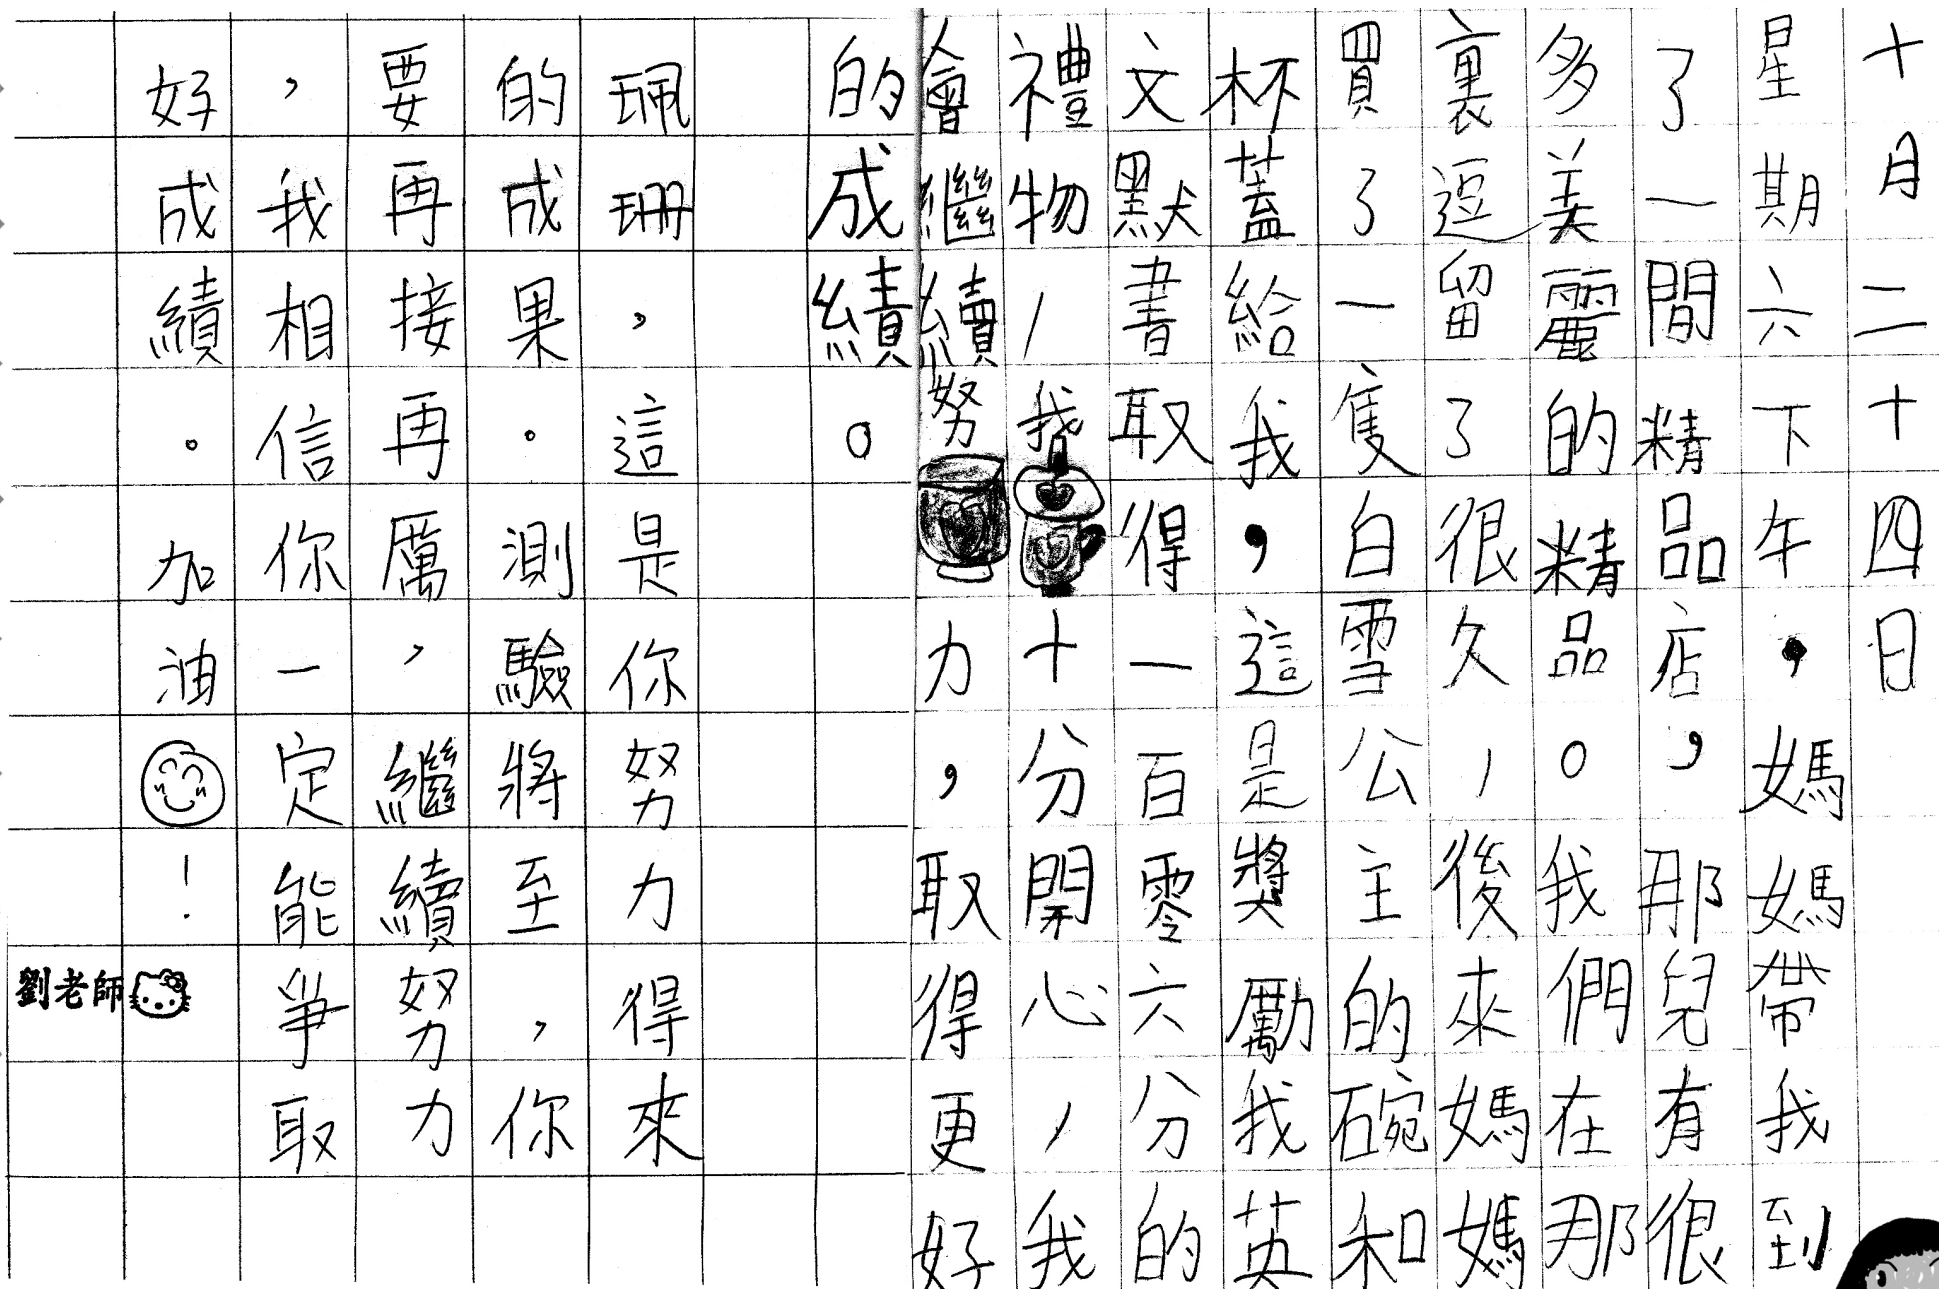 十月二十四日
星期六下午，媽媽帶我到
了一間精品店，那兒有很
多美麗的精品。我們在那
裏逗留了很久，後來媽媽
買了一隻白雪公主的碗和
杯蓋給我，這是獎勵我英
文默書取得一百零六分的
禮物，我十分開心，我
會繼續努力，取得更好
的成績。
珮珊，這是你努力得來
的成果。測驗將至，你
要再接再厲，繼續努力
，我相信你一定能爭取
好成績。加油！
劉老師